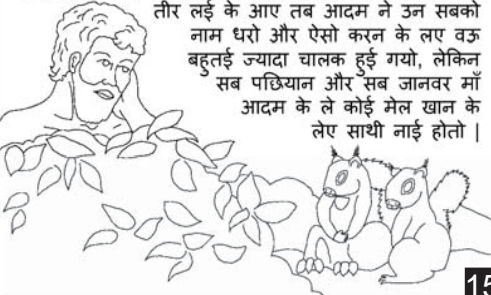 तीर लई के आए तब आदम ने उन सबको
नाम धरो और ऐसो करन के लए वऊ
बहुतई ज्यादा चालक हुई गयो, लेकिन
सब पछियान और सब जानवर माँ
आदम के ले कोई मेल खान के
लेए साथी नाई होतो |
15